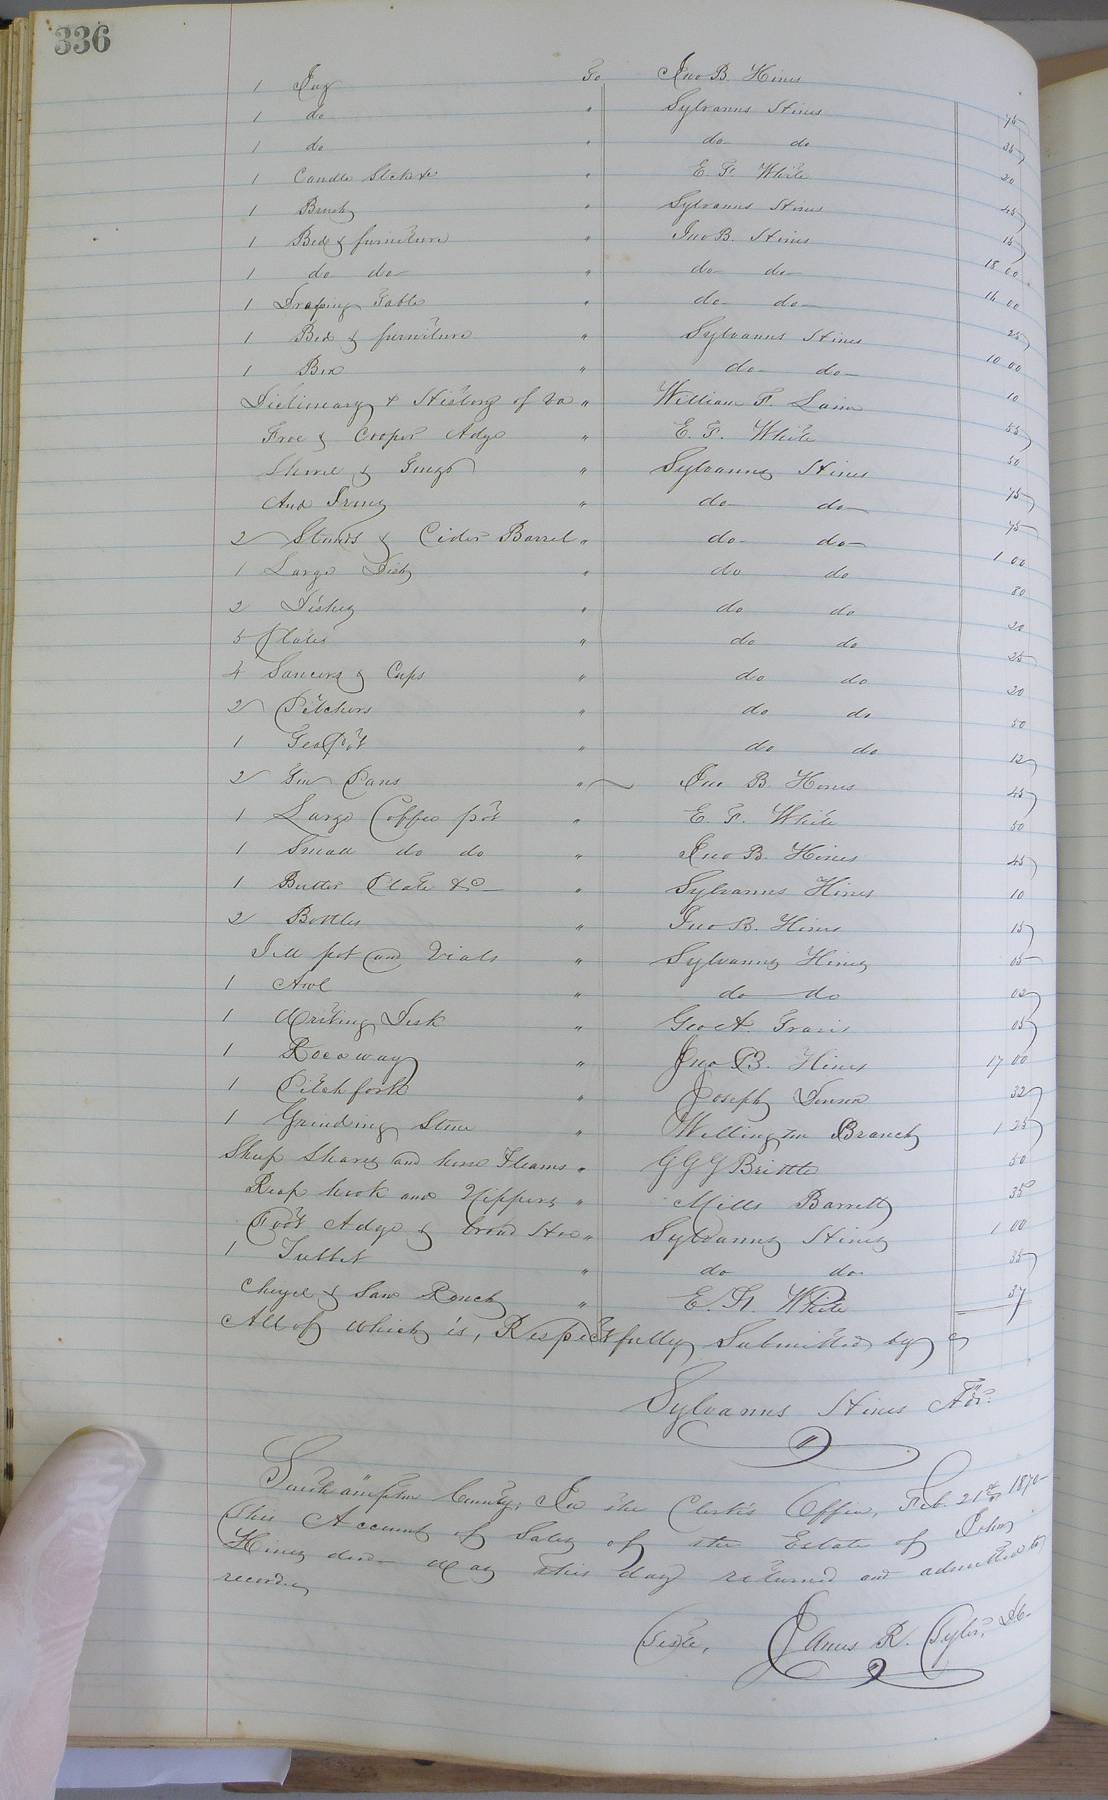 336
1 Jug To Jno B. Hines 75
1 do " Sylvanus Hines 35
1 do " do do 20
1 Candle Stick &c " E. F. White 45
1 Bench " Sylvanus Hines 15
1 Bed & furniture " Jno B. Hines 18 00
1 do do " do do 16 00
1 Table " do do 25
1 Bed & furniture " Sylvanus Hines 10 00
1 Box " do do 10
Dictionary & History of Va " William F. 55
Froe & Cooper Adze " E. F. White 50
& Tongs " Sylvanus Hines 75
And Irons " do do 75
2 Stands & Cider Barrel " do do 1 00
1 Large Dish " do do 80
2 Dishes " do do 20
5 Plates " do do 25
4 Saucers & Cups " do do 20
2 Pitchers " do do 50
1 Tea Pot " do do 12
2 Tin Pans " Jno B. Hines 45
1 Large Coffee pot " E. F. White 50
1 Small do do " Jno B. Hines 45
1 Butter Plate &c " Sylvanus Hines 10
2 Bottles " Jno B. Hines 15
pot and Vials " Sylvanus Hines 05
1 Awl " do do 02
1 Writing Desk " Geo A. 05
1 Rocaway " Jno B. Hines 17 00
1 Pitchfork " Joseph 32
1 Grinding Stone " Wellington Branch 1 25
Sheep Shares and horse Fleams " G G G Brittle 50
Reap hook and Nippers " Mills Barrett 35
Foot Adze & broad Hoe " Sylvanus Hines 1 00
1 " do do 35
Chisel & Saw " E. F. White 37
All of which is, Respectfully Submitted by
Sylvanus Hines Ador.
Southampton County, In the Clerk's Office, Feb. 21st 1870
This Account of Sales of the Estate of John
Hines decd was this day returned and admitted to
record.
Teste, James R. Tyler, D.C.